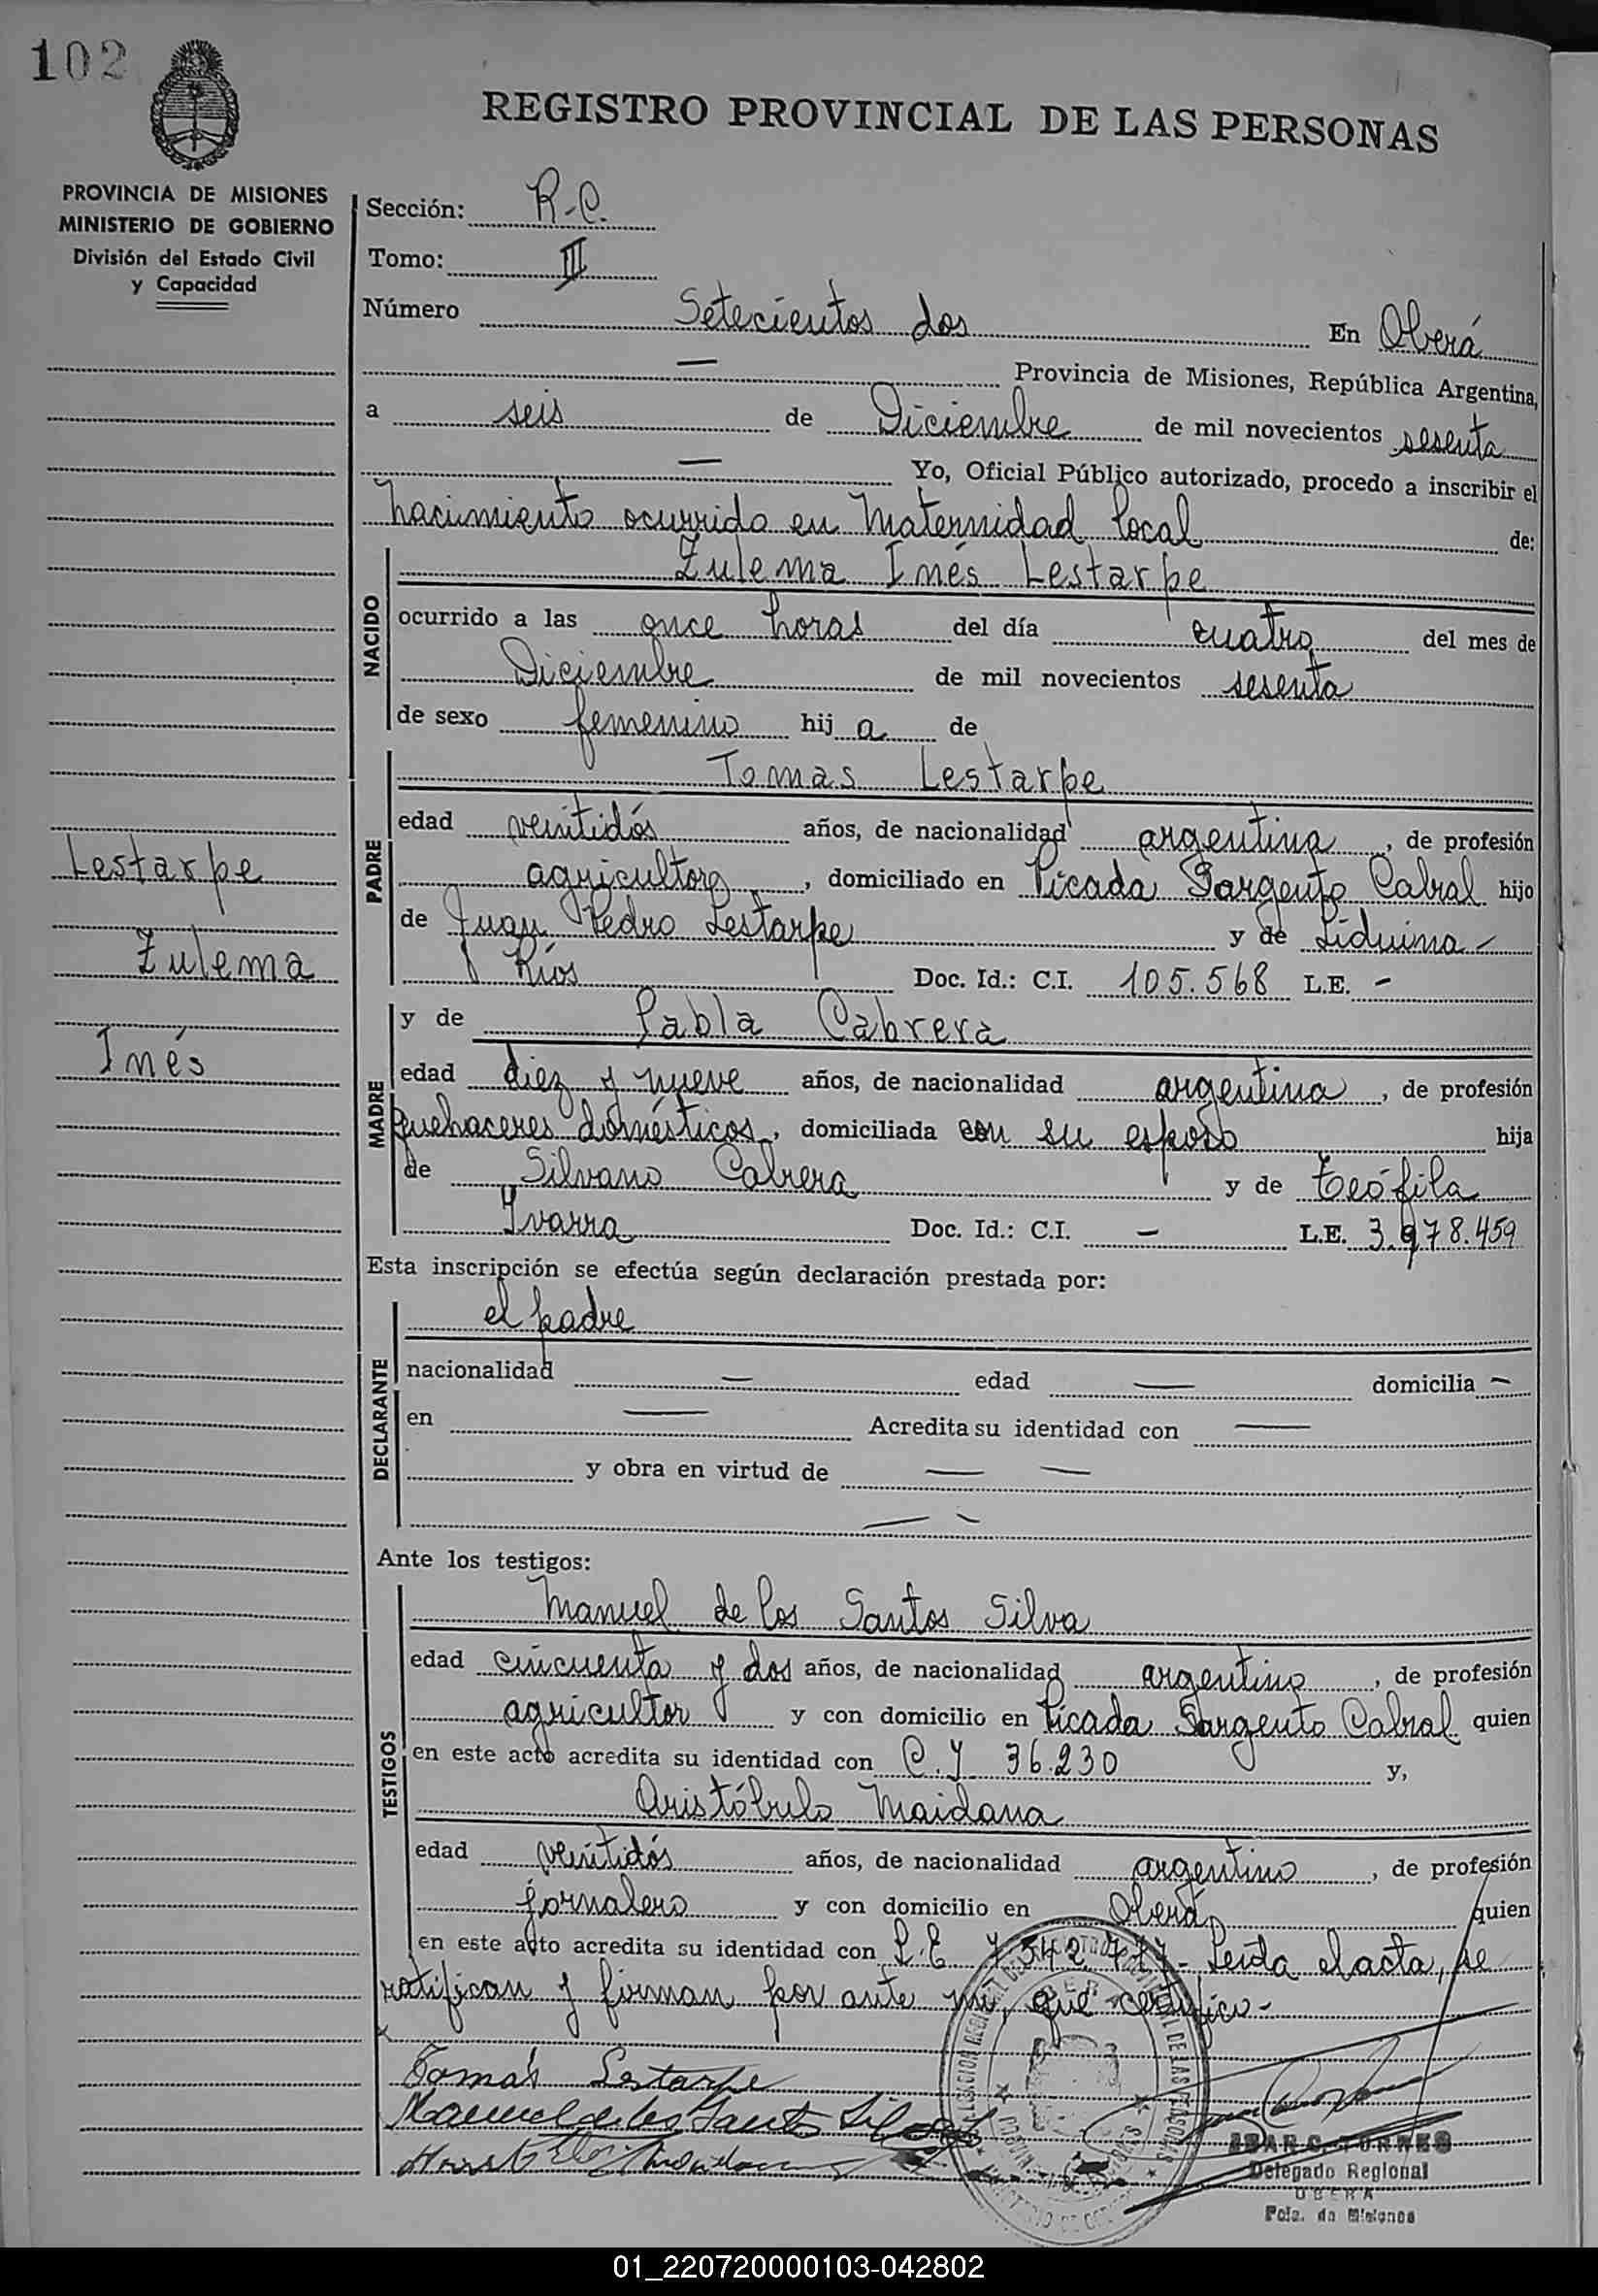 102
REGISTRO PROVINCIAL DE LAS PERSONAS
PROVINCIA DE MISIONES
MINISTERIO DE GOBIERNO
División del Estado Civil
y Capacidad
Sección: R.C.
Tomo: II
Número Setecientos dos En Oberá
— Provincia de Misiones, República Argentina,
a seis de Diciembre de mil novecientos sesenta
— Yo, Oficial Público autorizado, procedo a inscribir el
nacimiento ocurrido en Maternidad local de:
NACIDO
Zulema Inés Lestarpe
ocurrido a las once horas del día cuatro del mes de
Diciembre de mil novecientos sesenta
de sexo femenino hij a de
PADRE
Tomas Lestarpe
edad veintidós años, de nacionalidad argentina, de profesión
agricultor, domiciliado en Picada Sargento Cabral hijo
de Juan Pedro Lestarpe y de Liduina -
Ríos Doc. Id.: C.I. 105.568 L.E. -
MADRE
y de Pabla Cabrera
edad diez y nueve años, de nacionalidad argentina, de profesión
quehaceres domésticos, domiciliada con su esposo hija
de Silvano Cabrera y de Teófila
Ivarra Doc. Id.: C.I. — L.E. 3.978.459
Lestarpe
Zulema
Inés
Esta inscripción se efectúa según declaración prestada por:
DECLARANTE
el padre
nacionalidad — edad — domicilia —
en — Acredita su identidad con —
y obra en virtud de — —
— —
Ante los testigos:
TESTIGOS
Manuel de los Santos Silva
edad cincuenta y dos años, de nacionalidad argentino, de profesión
agricultor y con domicilio en Picada Sargento Cabral quien
en este acto acredita su identidad con C.I 36.230 y,
Aristóbulo Maidana
edad veintidós años, de nacionalidad argentino, de profesión
jornalero y con domicilio en Oberá quien
en este acto acredita su identidad con L.E 7.542.777- Leída el acta, se
ratifican y firman por ante mi, que certifico-
Tomás Lestarpe
Manuel de los Santos Silva
C. TORRES
Delegado Regional
OBERA
Pcia. de Misiones
01_220720000103-042802